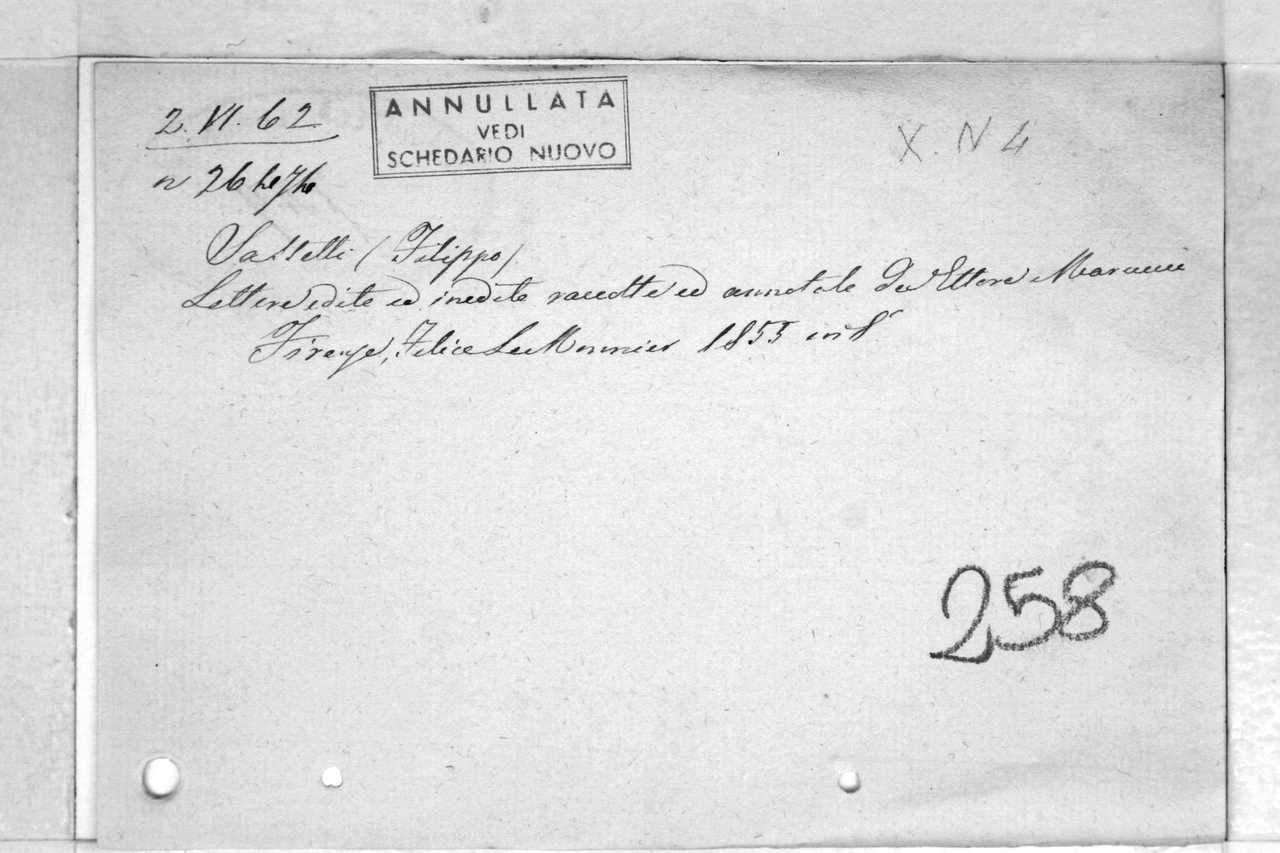 2. VI. 62
ANNULLATA
VEDI
SCHEDARIO NUOVO
X. N 4
n 26
Sassetti (Filippo)
Lettere edite ed inedite raccolte ed annotate da Ettore Marcucci
Firenze, Felice Le Monnier 1855 in 8°
258